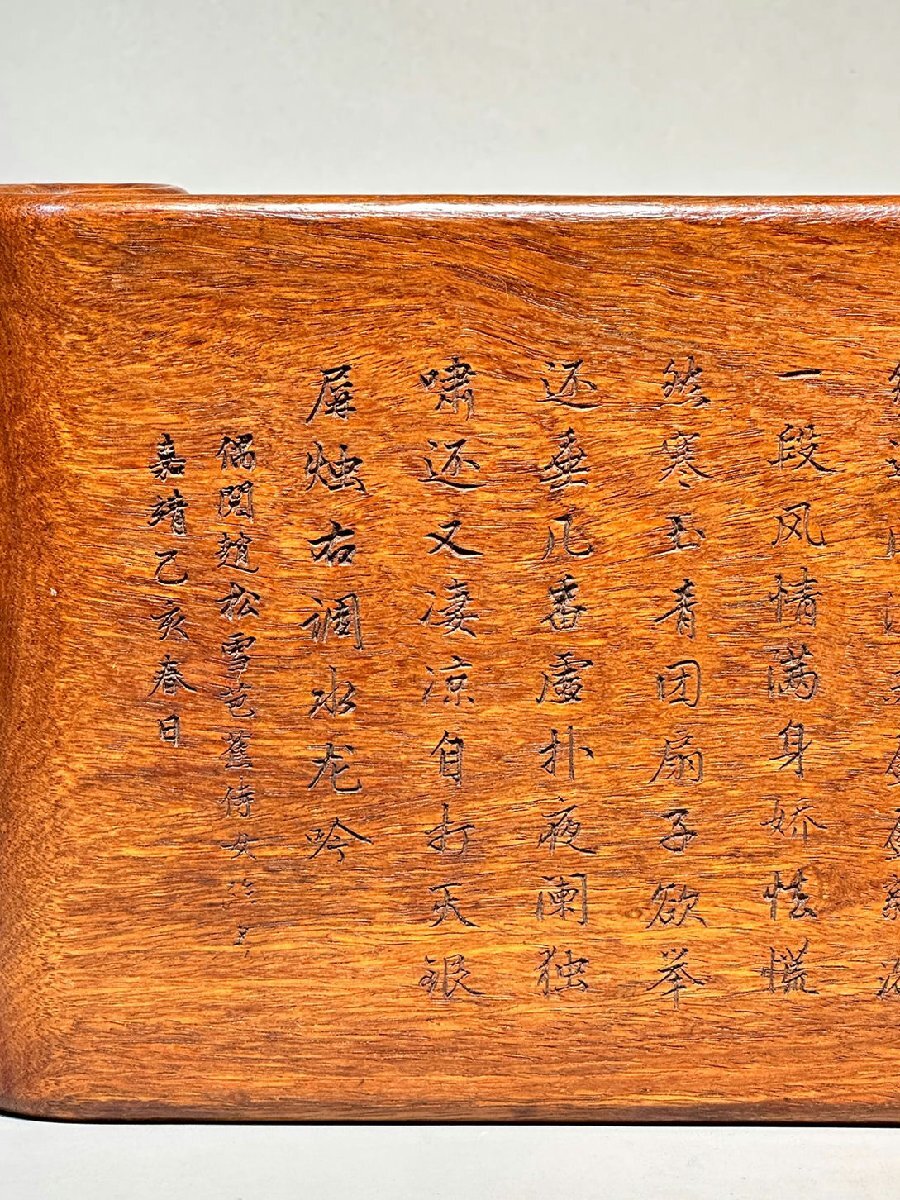 一段风情满身娇怯慌
然寒玉青团扇子欲举
还垂几番虚扑夜阑独
啸还又凄凉自打天银
屏烛右调水龙吟
偶閱趙松雪芭蕉侍女
嘉靖己亥春日